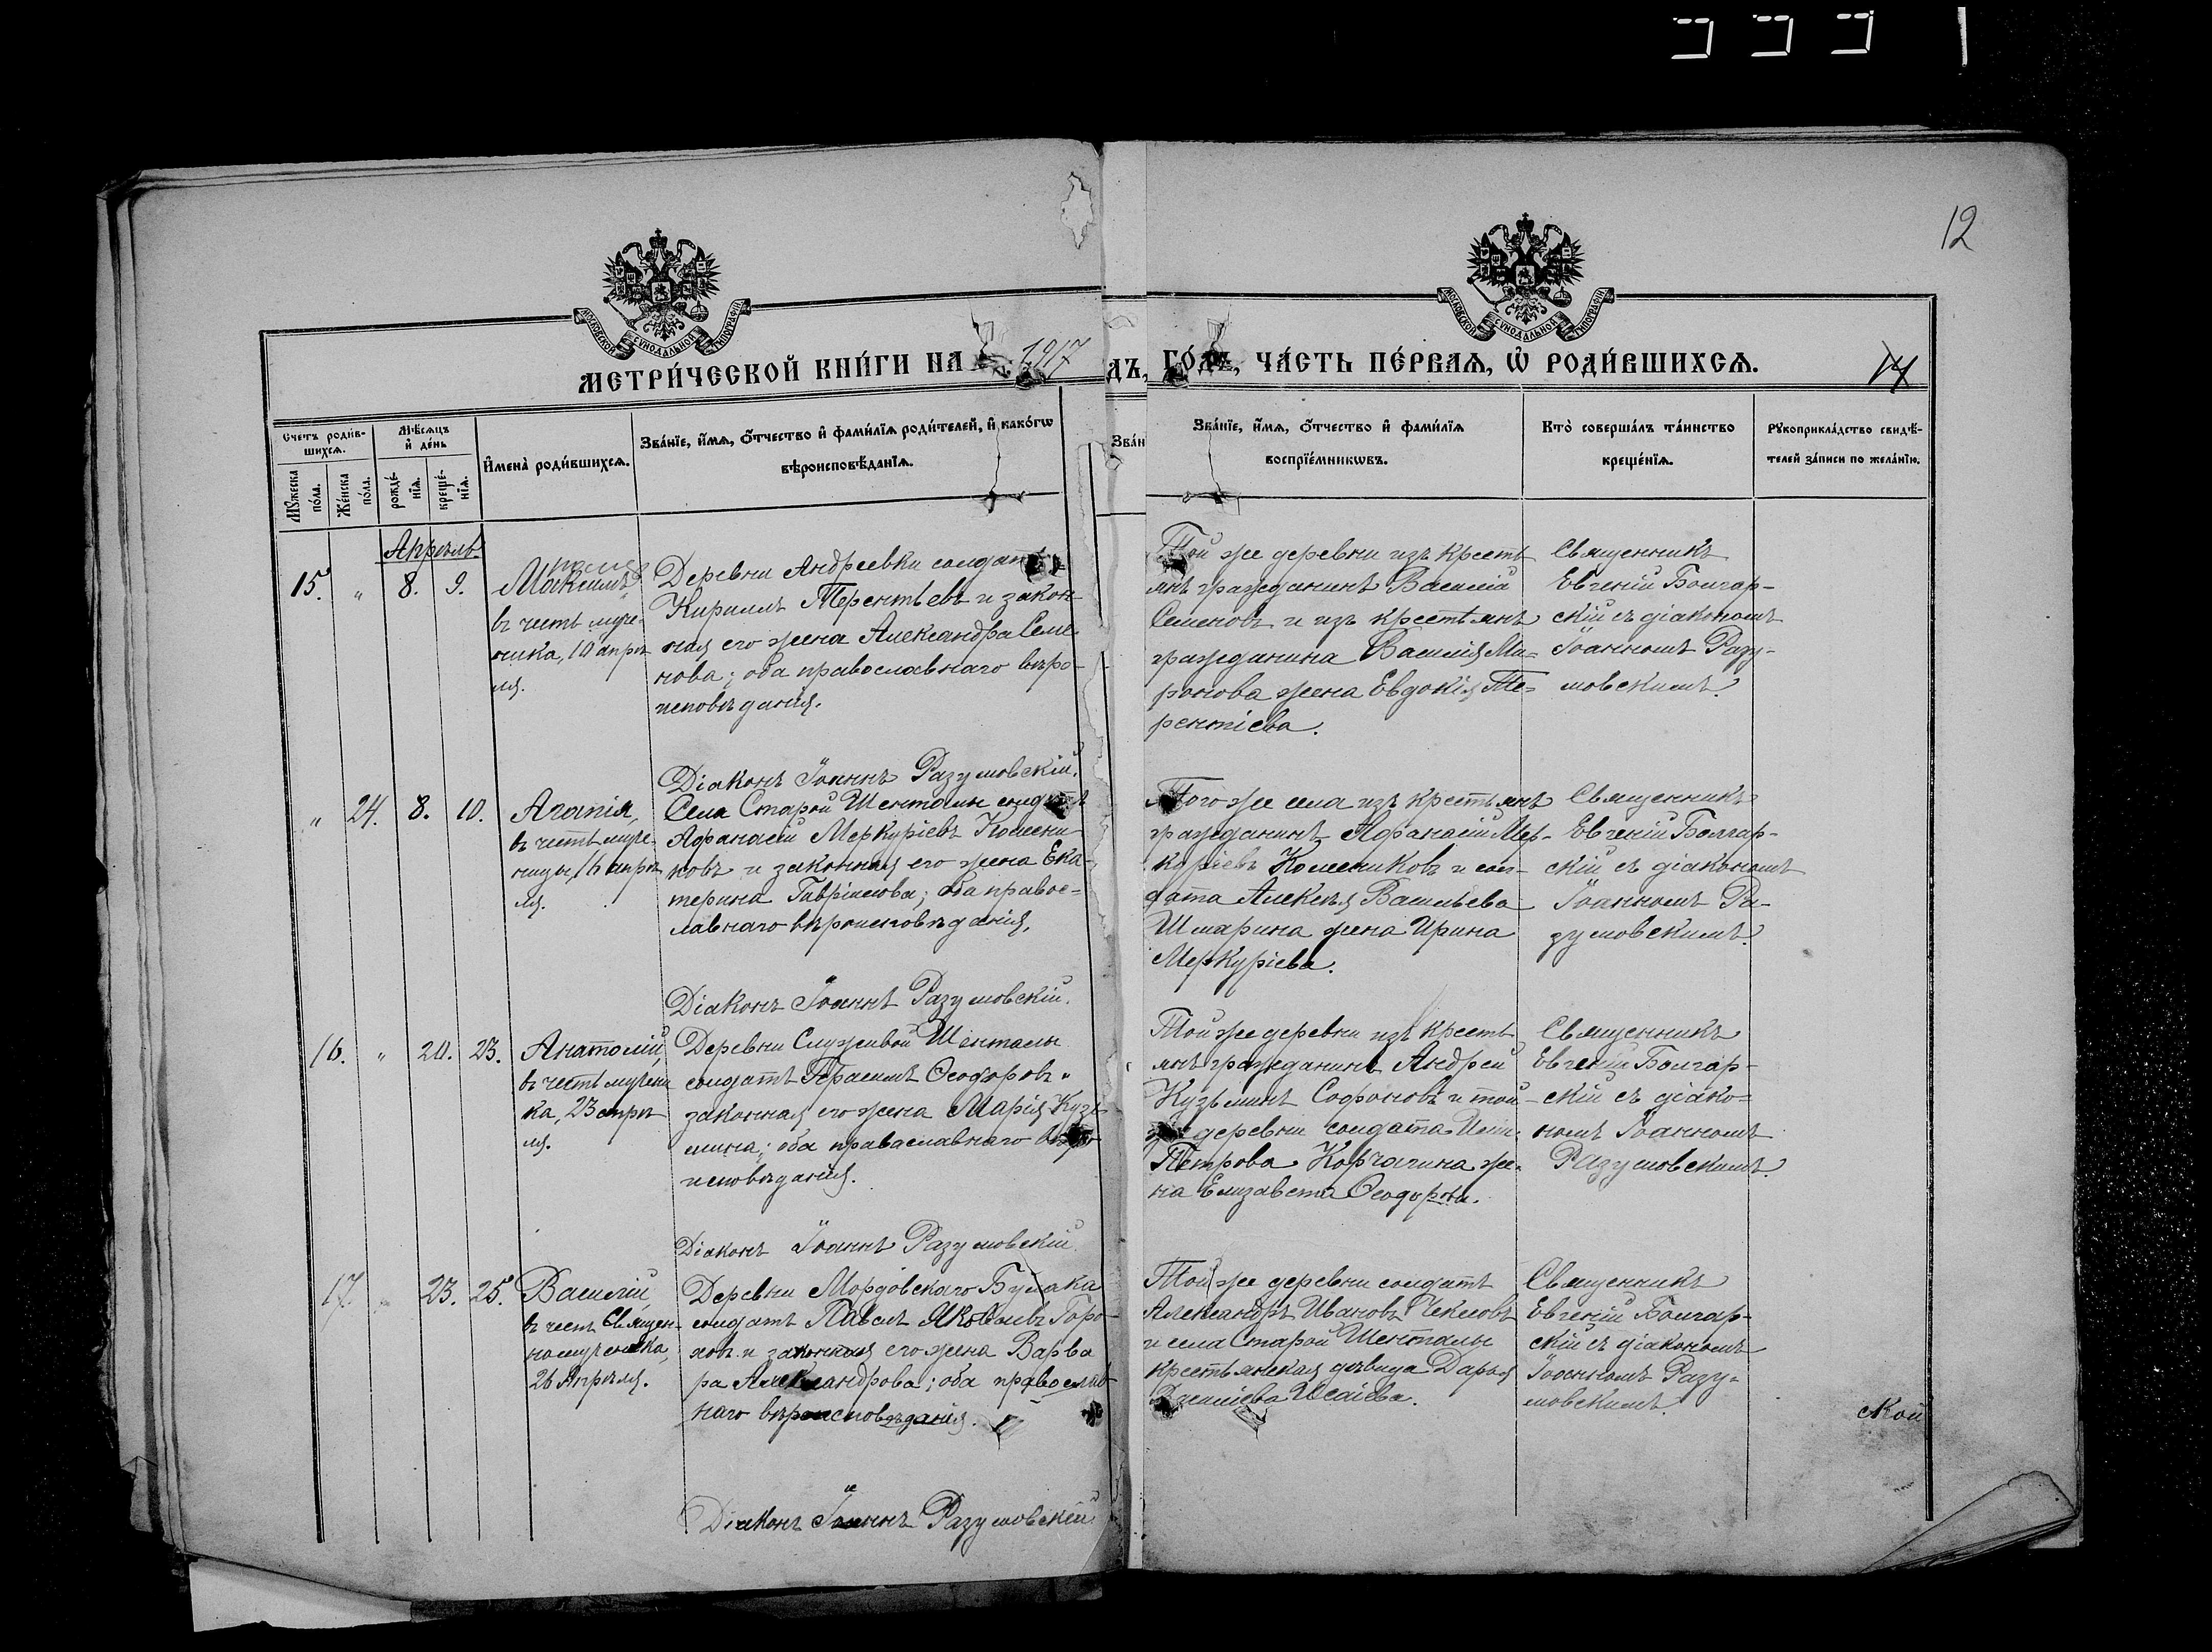 12
МОСКОВСКОЙ СѴНОДАЛЬНОЙ ТИПОГРАФІИ
МОСКОВСКОЙ СѴНОДАЛЬНОЙ ТИПОГРАФІИ
МЕТРИ́ЧЕСКОЙ КНИ́ГИ НА 1917
ДЪ, ГО́ДЪ, ЧА́СТЬ ПЕ́РВАѦ, Ѡ҆ РОДИ́ВШИХСѦ.
14
Счетъ роди́в-
шихсѧ.
Мѣ́сѧцъ
и҆ де́нь
Мꙋ́жеска
по́ла.
Же́нска
по́ла.
рожде́-
нїѧ.
креще́-
нїѧ.
И҆мена̀ роди́вшихсѧ.
Зва́нїе, и҆́мѧ, ѻ҆́тчество и҆ фами́лїѧ роди́телей, и҆ како́гѡ
вѣроисповѣ́данїѧ.
Зва́н
Зва́нїе, и҆́мѧ, ѻ҆́тчество и҆ фами́лїѧ
воспрїе́мникѡвъ.
Кто̀ соверша́лъ та́инство
креще́нїѧ.
Рꙋкоприкла́дство свидѣ́-
телей за́писи по жела́нїю.
Апрѣль
15. „ 8. 9.
Максимъ,
въ честь муче-
ника, 10 апрѣ
ля.
Деревни Андреевки солдатъ
Кириллъ Терентьевъ и закон-
ная его жена Александра Семе-
нова; оба православнаго вѣро-
исповѣданія.
Діаконъ Іоаннъ Разумовскій.
Той же деревни изъ кресть
янъ гражданинъ Василій
Семеновъ и изъ крестьянъ
гражданина Василія Ми-
ронова жена Евдокія Те-
рентіева.
Священникъ
Евгеній Болгар-
скій съ діакономъ
Іоанномъ Разу-
мовскимъ.
„ 24. 8. 10.
Агапія,
въ честь муче-
ницы, 16 апрѣ
ля.
Села Старой Шенталы солдатъ
Афанасій Меркуріевъ Колесни-
ковъ и законная его жена Ека-
терина Гавріилова; оба правос-
лавнаго вѣроисповѣданія.
Діаконъ Іоаннъ Разумовскій.
Того же села изъ крестьянъ
гражданинъ Афанасій Мер-
куріевъ Колесниковъ и сол-
дата Алексѣя Васильева
Шмарина жена Ирина
Меркуріева.
Священникъ
Евгеній Болгар-
скій съ діакономъ
Іоанномъ Ра-
зумовскимъ.
16. „ 20. 23.
Анатолій,
въ честь мучени
ка, 23 апрѣ
ля.
Деревни Служивой Шенталы
солдатъ Герасимъ Ѳеодоровъ и
законная его жена Марія Кузь
мина; оба православнаго вѣро
исповѣданія.
Діаконъ Іоаннъ Разумовскій
Той же деревни изъ кресть
янъ гражданинъ Андрей
Кузьминъ Софроновъ и той-
же деревни солдата
Петрова Корчагина же-
на Елизавета Ѳеодорова.
Священникъ
Евгеній Болгар-
скій съ діако-
номъ Іоанномъ
Разумовскимъ.
17. „ 23. 25.
Василій,
въ честь Священ-
номученика,
26 Апрѣля.
Деревни Мордовскаго Булака
солдатъ Павелъ Яковлевъ Горо-
ховъ и законная его жена Варва
ра Александрова; оба православ
наго вѣроисповѣданія.
Діаконъ Іоаннъ Разумовскій
Той же деревни солдатъ
Александръ Ивановъ
и села Старой Шенталы
крестьянская дѣвица Дарья
Исаіева.
Священникъ
Евгеній Болгар-
скій съ діакономъ
Іоанномъ Разу-
мовскимъ.
ской